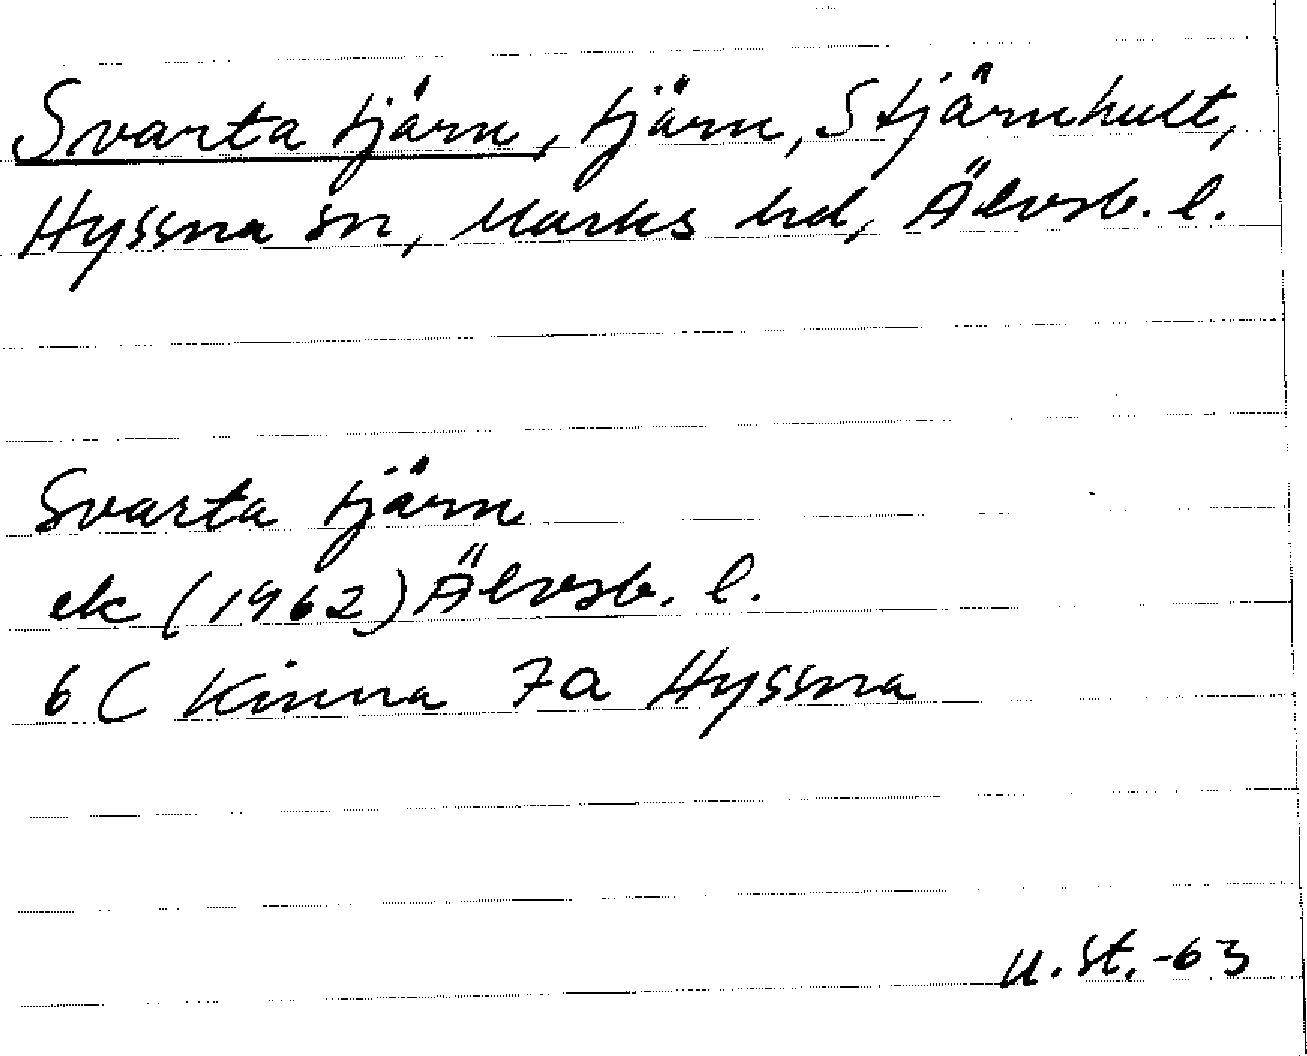 Svarta tjärn, tjärn, Stjärnhult,
Hyssna sn, Marks hd, Älvsb. l.
Svarta tjärn
ek (1962) Älvsb. l.
6 C Kinna 7a Hyssna
U. St. -63